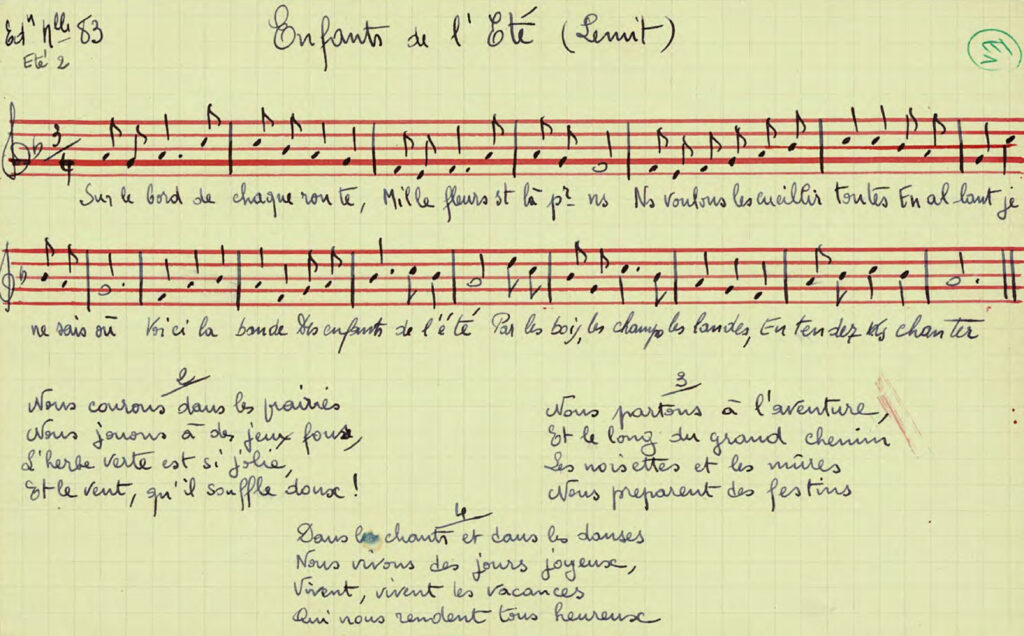 Edn nlle 83
Eté 2
Enfants de l'Eté (Lemit)
En
3/4
Sur le bord de chaque route, Mille fleurs st là pr ns Ns voulons les cueillir toutes En al-lant je
ne sais où Voici la bande Des enfants de l'été Par les bois, les champs les landes, Entendez les chanter
2
Nous courons dans les prairies
Nous jouons à des jeux foux,
L'herbe verte est si jolie,
Et le vent, qu'il souffle doux !
3
Nous partons à l'aventure,
Et le long du grand chemin
Les noisettes et les mûres
Nous préparent des festins
4
Dans les chants et dans les danses
Nous vivons des jours joyeux,
Vivent, vivent les vacances
Qui nous rendent tous heureux